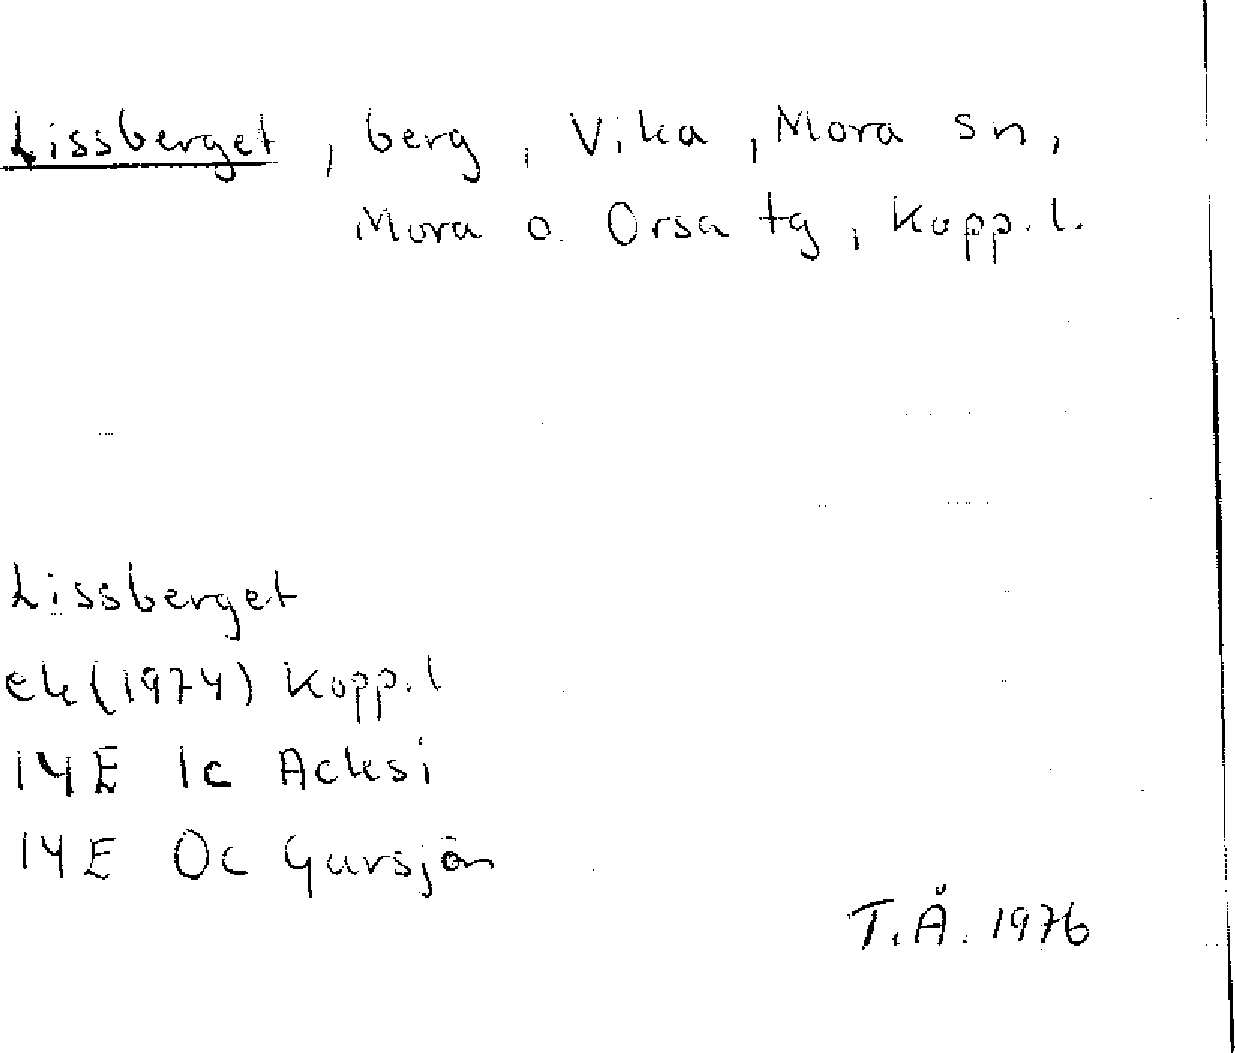 Lissberget, berg, Vika, Mora sn,
Mora o. Orsa tg, Kopp. l.
Lissberget
ek (1974) Kopp. l
14E 1c Acksi
14E 0c Gursjön
T.Å. 1976